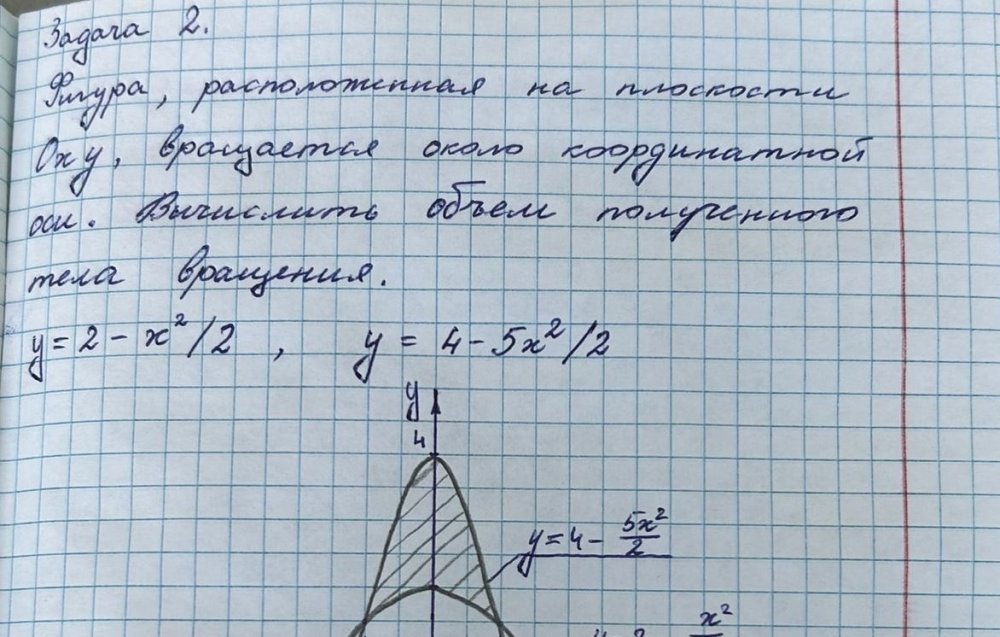 Задача 2.
Фигура, расположенная на плоскости
Oxy, вращается около координатной
оси. Вычислить объем полученного
тела вращения.
y = 2 - x²/2 , y = 4 - 5x²/2
y
4
y = 4 - 5x²/2
x²